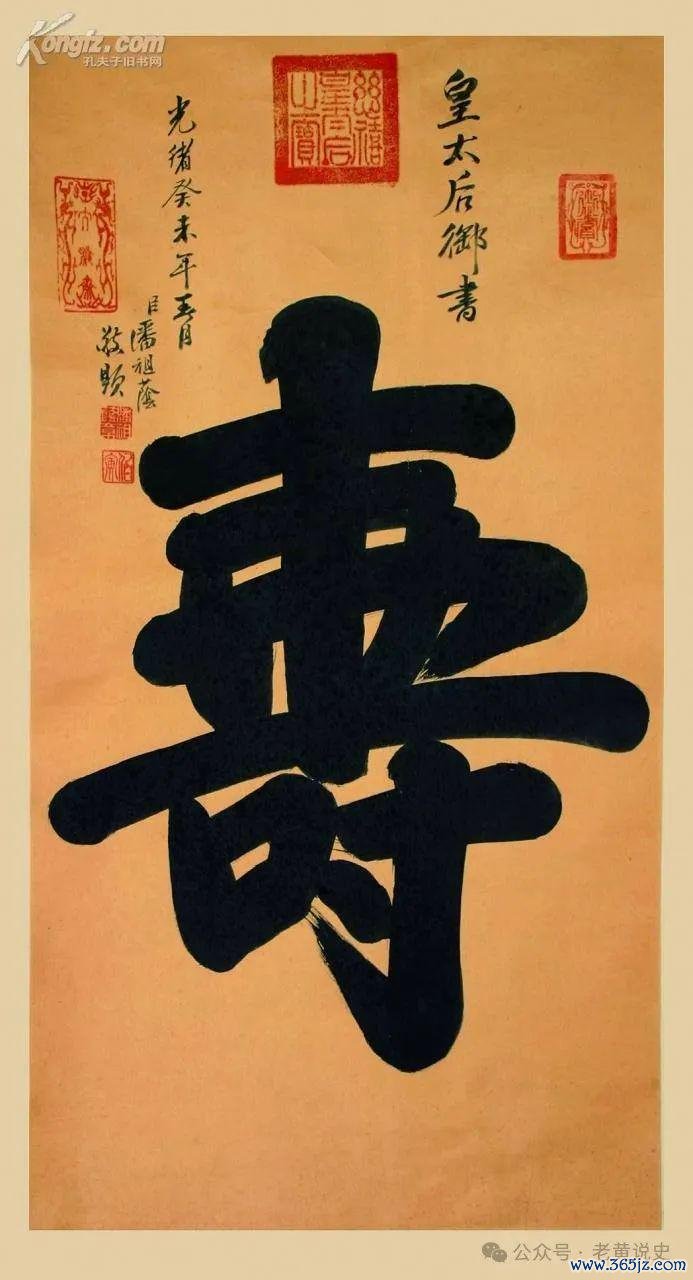 Kongfz.com
孔夫子旧书网
慈禧皇太后之寶
皇太后御書
壽
光緒癸未年春月
臣潘祖蔭
敬題
公众号·老黄说史
www.365jz.com